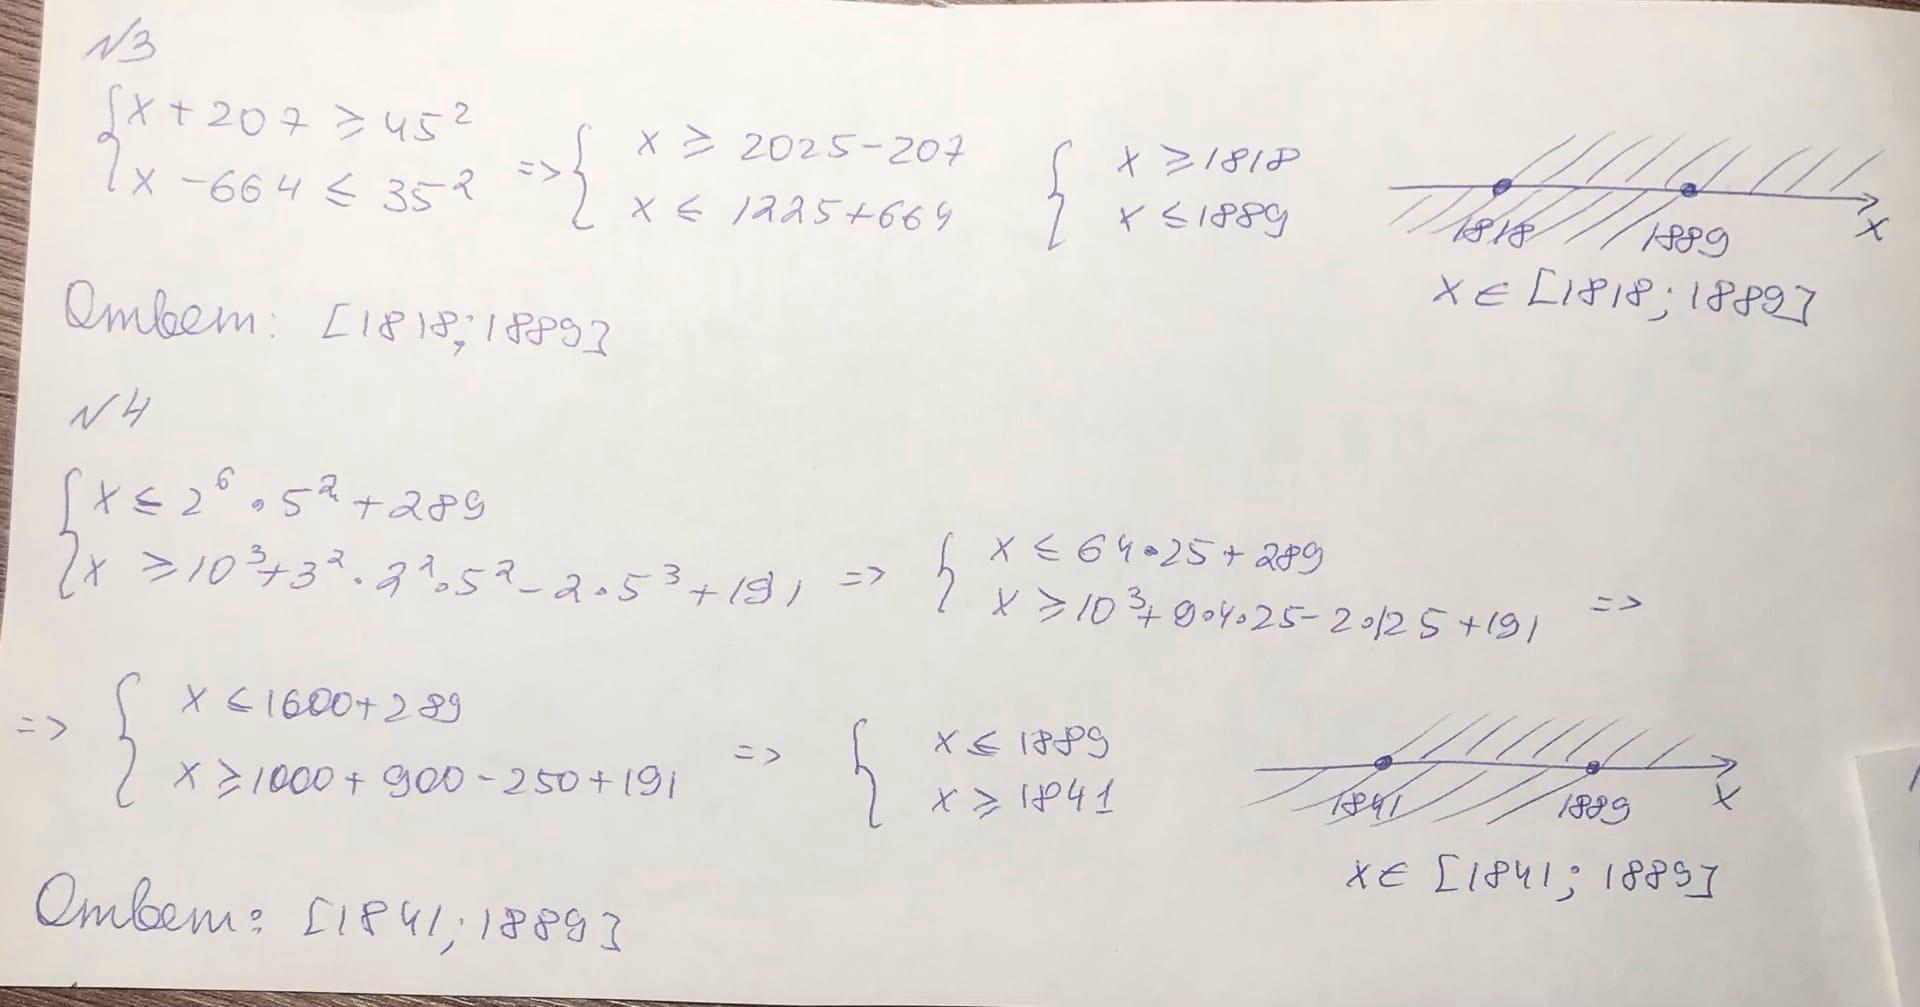 N3
{x + 207 ≥ 45²
{x - 664 ≤ 35²
=> { x ≥ 2025-207
x ≤ 1225+664
{ x ≥ 1818
x ≤ 1889
1818 1889 x
x ∈ [1818; 1889]
Ответ: [1818; 1889]
N4
{x ≤ 2⁶ · 5² + 289
{x ≥ 10³ + 3² · 2² · 5² - 2 · 5³ + 191
=> { x ≤ 64 · 25 + 289
x ≥ 10³ + 9 · 4 · 25 - 2 · 125 + 191 =>
=> { x ≤ 1600 + 289
x ≥ 1000 + 900 - 250 + 191
=> { x ≤ 1889
x ≥ 1841
1841 1889 x
x ∈ [1841; 1889]
Ответ: [1841; 1889]